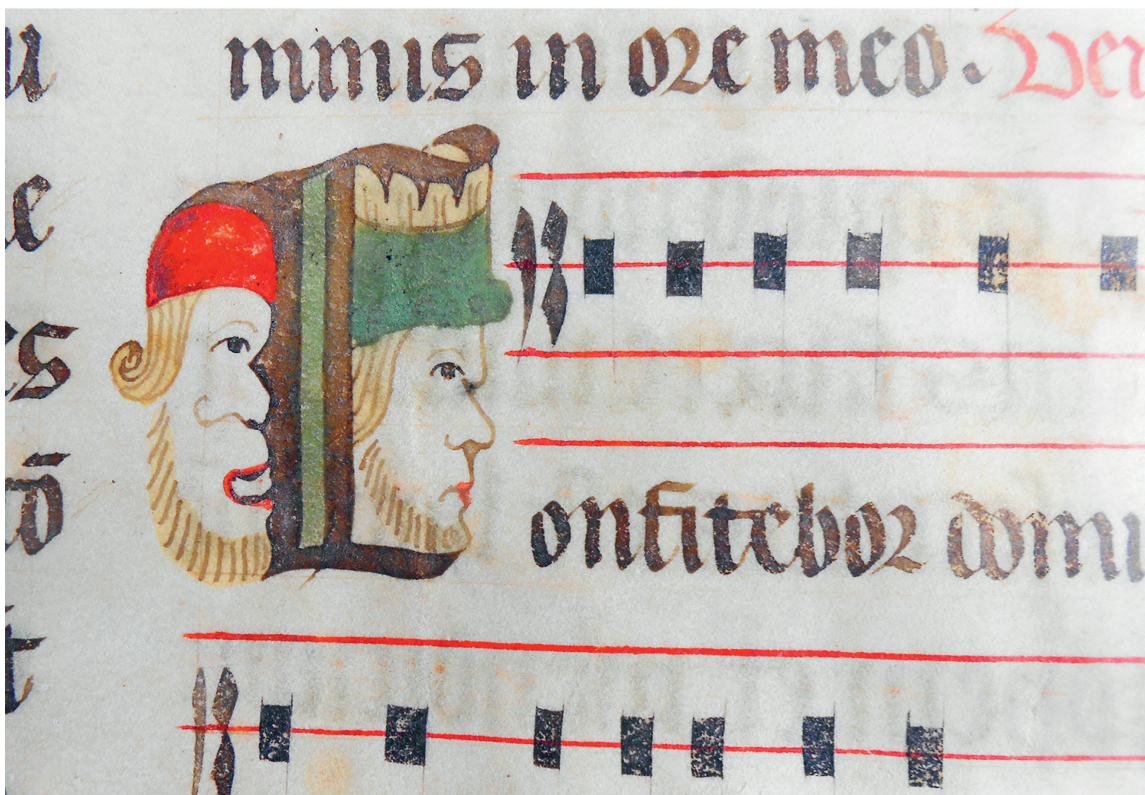 mmis in ore meo. Ver
Confitebor domi